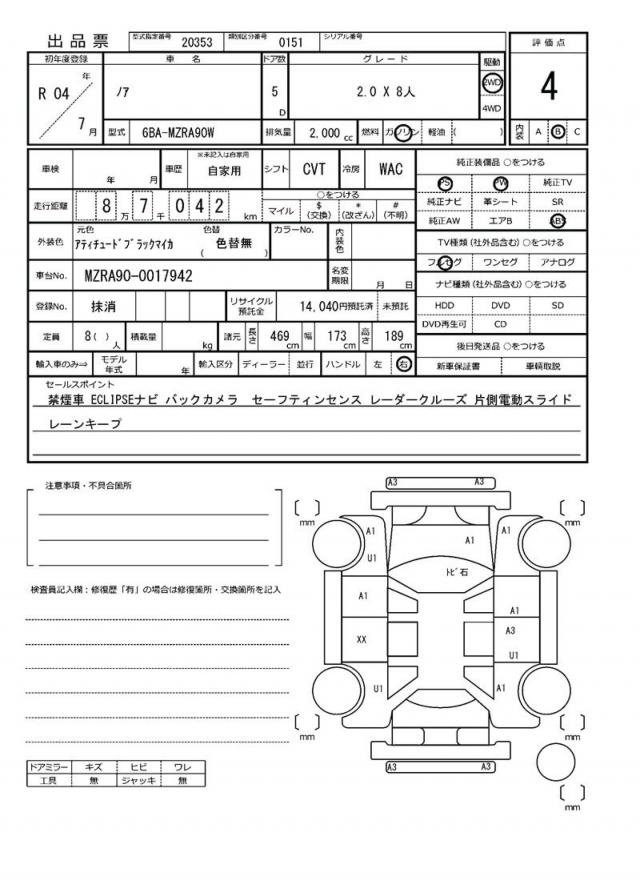 出品票 型式指定番号 20353 類別区分番号 0151 シリアル番号
評価点
4
初年度登録 車名 ドア数 グレード 駆動
R 04 年 7 月
ノア
5 D
2.0 X 8人
2WD
4WD
型式 6BA-MZRA90W 排気量 2,000 cc 燃料 ガソリン 軽油 ( )
内装 A B C
車検 年 月 車歴 ※未記入は自家用 自家用 シフト CVT 冷房 WAC
走行距離 8 万 7 千 0 4 2 km
○をつける
マイル $ (交換) * (改ざん) # (不明)
外装色 元色 アティチュードブラックマイカ 色替 ( 色替無 ) カラーNo. 内装色
車台No. MZRA90-0017942 名変期限 月 日
登録No. 抹消 リサイクル預託金 14,040円預託済 未預託
定員 8( ) 人 積載量 kg 諸元 長さ 469 cm 幅 173 cm 高さ 189 cm
輸入車のみ⇒ モデル年式 年 輸入区分 ディーラー 並行 ハンドル 左 右
純正装備品 ○をつける
PS PW 純正TV
純正ナビ 革シート SR
純正AW エアB ABS
TV種類 (社外品含む) ○をつける
フルセグ ワンセグ アナログ
ナビ種類 (社外品含む) ○をつける
HDD DVD SD
DVD再生可 CD
後日発送品 ○をつける
新車保証書 車輌取説
セールスポイント
禁煙車 ECLIPSEナビ バックカメラ セーフティンセンス レーダークルーズ 片側電動スライド
レーンキープ
注意事項・不具合箇所
検査員記入欄：修復歴「有」の場合は修復箇所・交換箇所を記入
ドアミラー キズ ヒビ ワレ
工具 無 ジャッキ 無
A3 A3
mm mm
A1 A1 A1
U1
トビ石
A1 A1
XX A3
U1
U1 A1
mm mm
A3 A3
mm